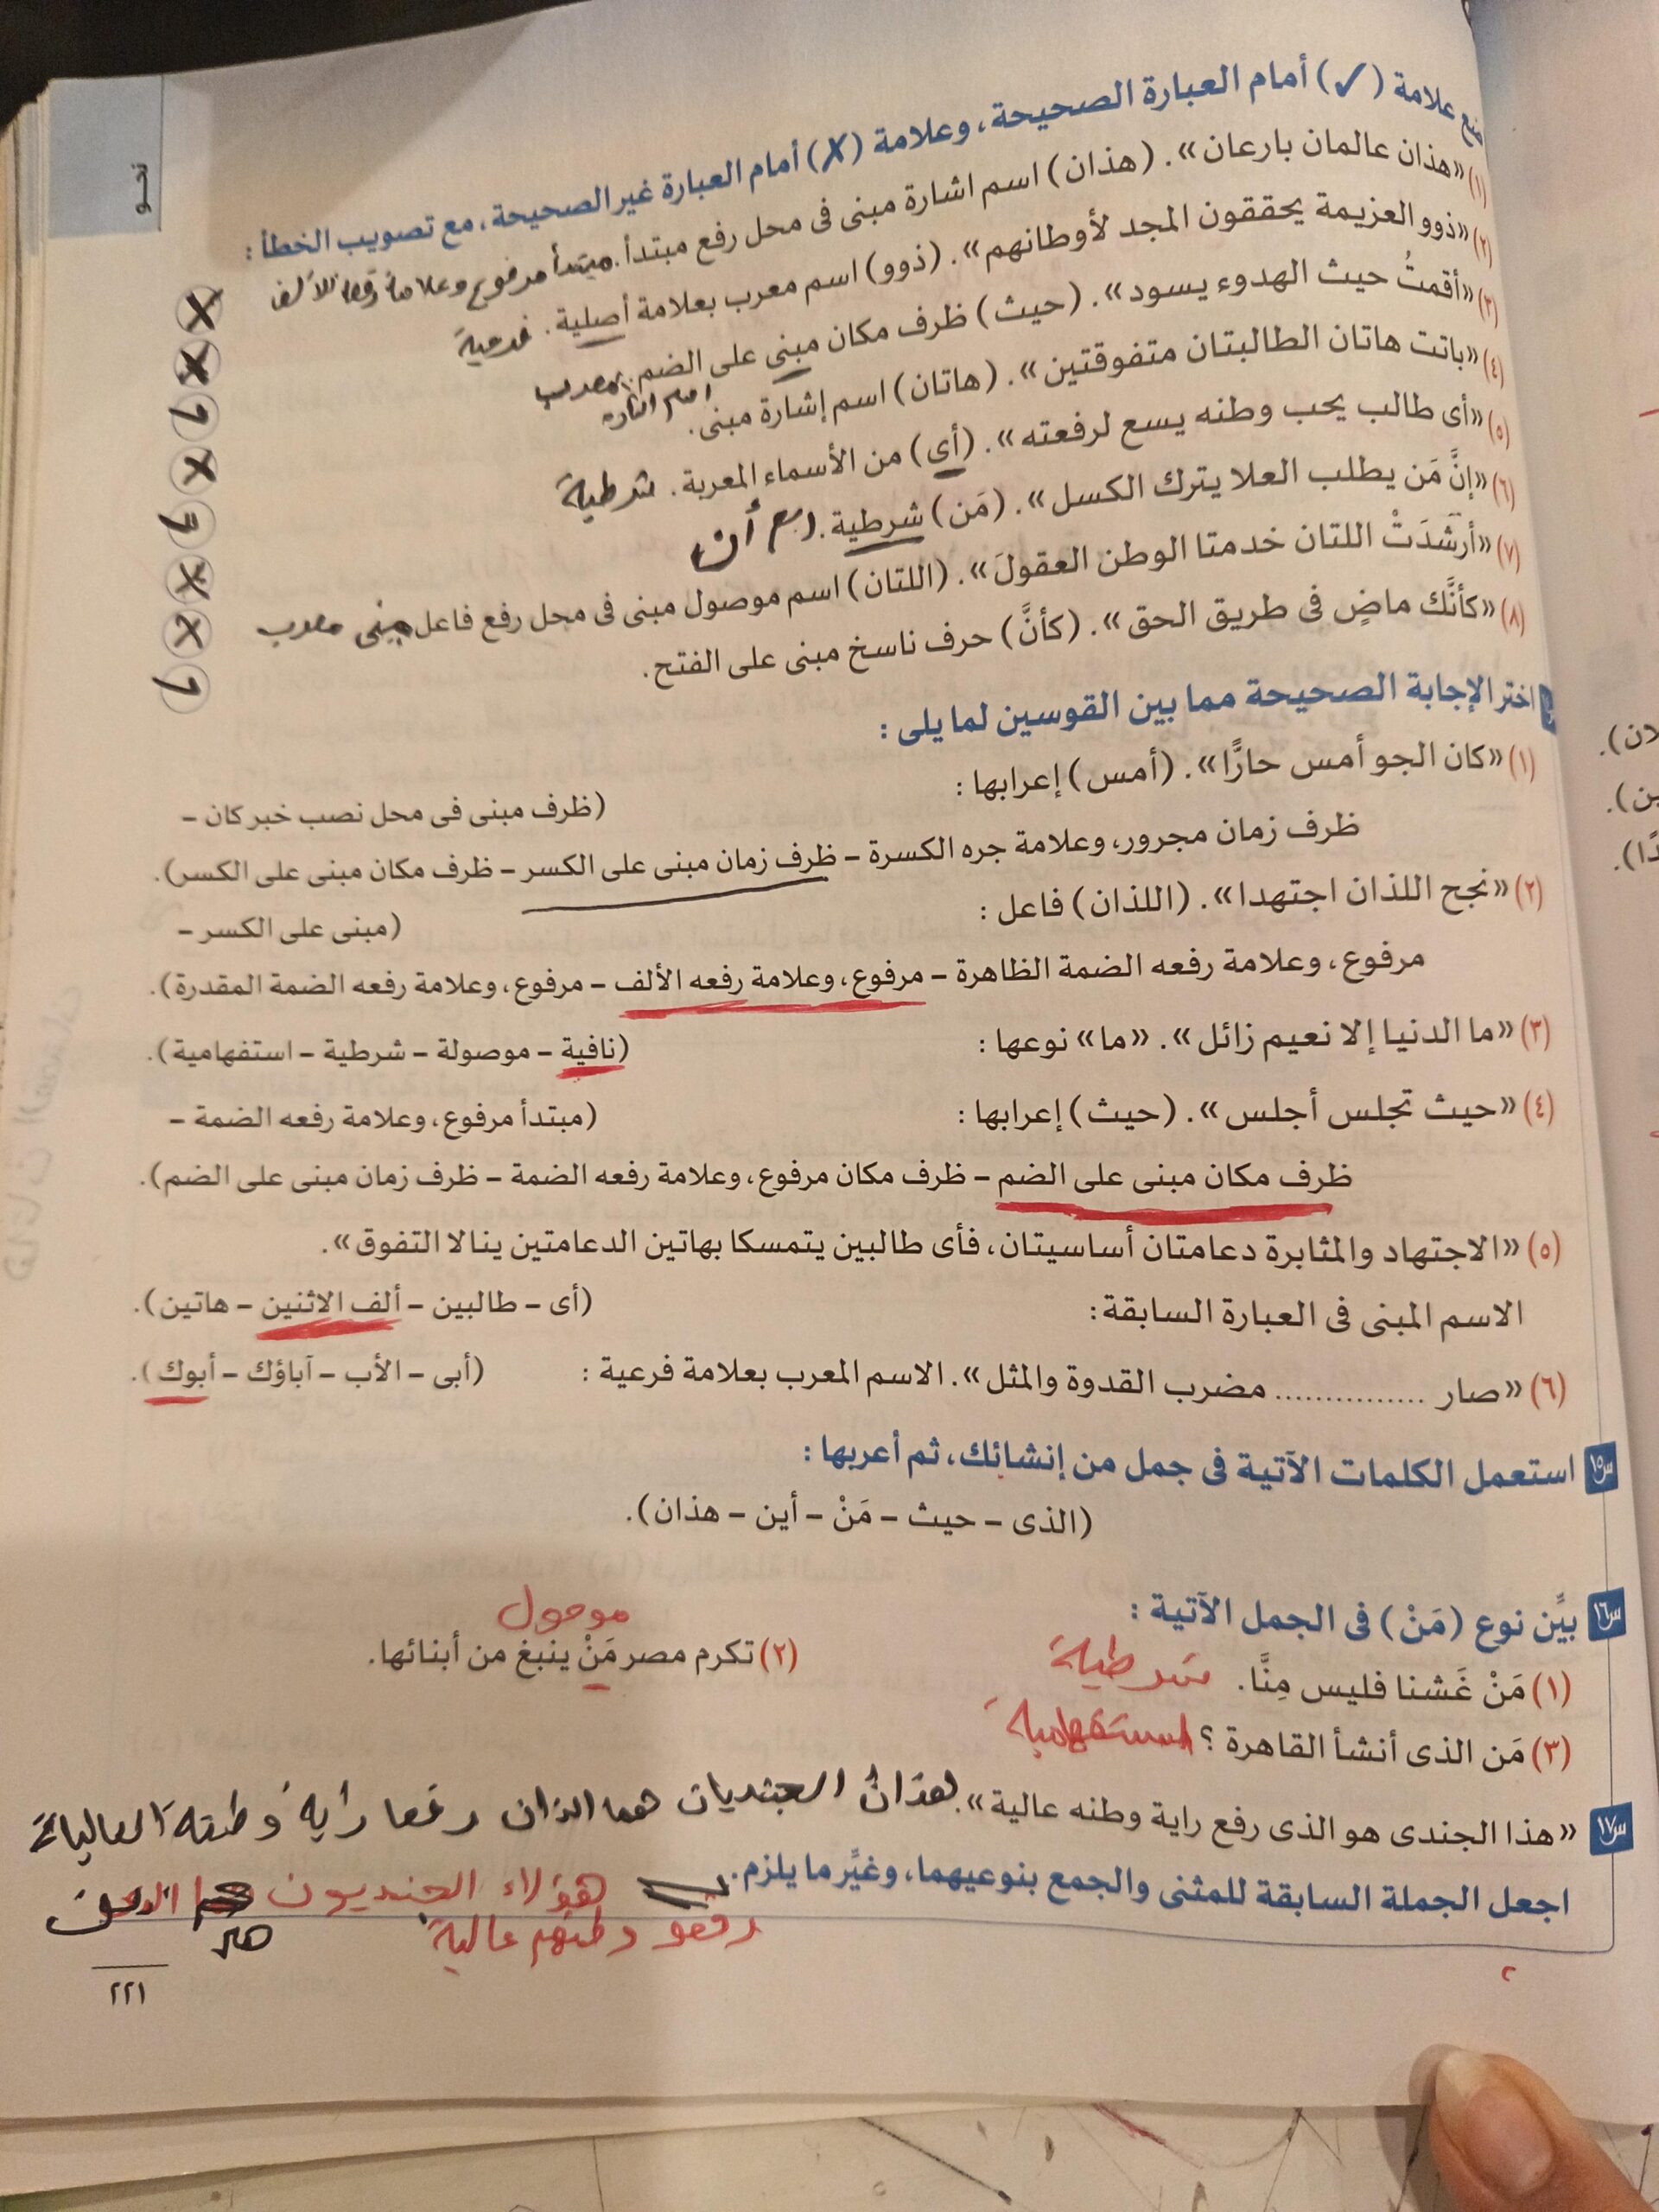 نحو
ضع علامة (✓) أمام العبارة الصحيحة، وعلامة (✗) أمام العبارة غير الصحيحة، مع تصويب الخطأ :
(١) «هذان عالمان بارعان». (هذان) اسم اشارة مبنى فى محل رفع مبتدأ. مبتدأ مرفوع وعلامة رفعه الألف ✗
(٢) «ذوو العزيمة يحققون المجد لأوطانهم». (ذوو) اسم معرب بعلامة أصلية. فرعية ✗
(٣) «أقمتُ حيث الهدوء يسود». (حيث) ظرف مكان مبنى على الضم.
(٤) «باتت هاتان الطالبتان متفوقتين». (هاتان) اسم إشارة مبنى. معرب ✗
(٥) «أى طالب يحب وطنه يسع لرفعته». (أى) من الأسماء المعربة. شرطية
(٦) «إنَّ مَن يطلب العلا يترك الكسل». (مَن) شرطية. اسم أن ✗
(٧) «أرشَدَتْ اللتان خدمتا الوطن العقولَ». (اللتان) اسم موصول مبنى فى محل رفع فاعل. معرب ✗
(٨) «كأنَّك ماضٍ فى طريق الحق». (كأنَّ) حرف ناسخ مبنى على الفتح.
اختر الإجابة الصحيحة مما بين القوسين لما يلى :
(١) «كان الجو أمس حارًّا». (أمس) إعرابها : (ظرف مبنى فى محل نصب خبر كان –
ظرف زمان مجرور، وعلامة جره الكسرة – ظرف زمان مبنى على الكسر – ظرف مكان مبنى على الكسر).
(٢) «نجح اللذان اجتهدا». (اللذان) فاعل : (مبنى على الكسر –
مرفوع، وعلامة رفعه الضمة الظاهرة – مرفوع، وعلامة رفعه الألف – مرفوع، وعلامة رفعه الضمة المقدرة).
(٣) «ما الدنيا إلا نعيم زائل». «ما» نوعها : (نافية – موصولة – شرطية – استفهامية).
(٤) «حيث تجلس أجلس». (حيث) إعرابها : (مبتدأ مرفوع، وعلامة رفعه الضمة –
ظرف مكان مبنى على الضم – ظرف مكان مرفوع، وعلامة رفعه الضمة – ظرف زمان مبنى على الضم).
(٥) «الاجتهاد والمثابرة دعامتان أساسيتان، فأى طالبين يتمسكا بهاتين الدعامتين ينالا التفوق».
الاسم المبنى فى العبارة السابقة: (أى – طالبين – ألف الاثنين – هاتين).
(٦) «صار ............... مضرب القدوة والمثل». الاسم المعرب بعلامة فرعية : (أبى – الأب – آباؤك – أبوك).
س١٥ استعمل الكلمات الآتية فى جمل من إنشائك، ثم أعربها :
(الذى – حيث – مَنْ – أين – هذان).
س١٦ بيِّن نوع (مَنْ) فى الجمل الآتية :
موصول
(١) مَنْ غَشنا فليس مِنَّا. شرطية (٢) تكرم مصر مَنْ ينبغ من أبنائها.
(٣) مَن الذى أنشأ القاهرة ؟ استفهامية
س١٧ «هذا الجندى هو الذى رفع راية وطنه عالية». هذان الجنديان هما الذان رفعا راية وطنه العالية
اجعل الجملة السابقة للمثنى والجمع بنوعيهما، وغيِّر ما يلزم. هؤلاء الجنديون
هم
رفعو وطنهم عالية
٢٢١
لان).
ين).
دًا).